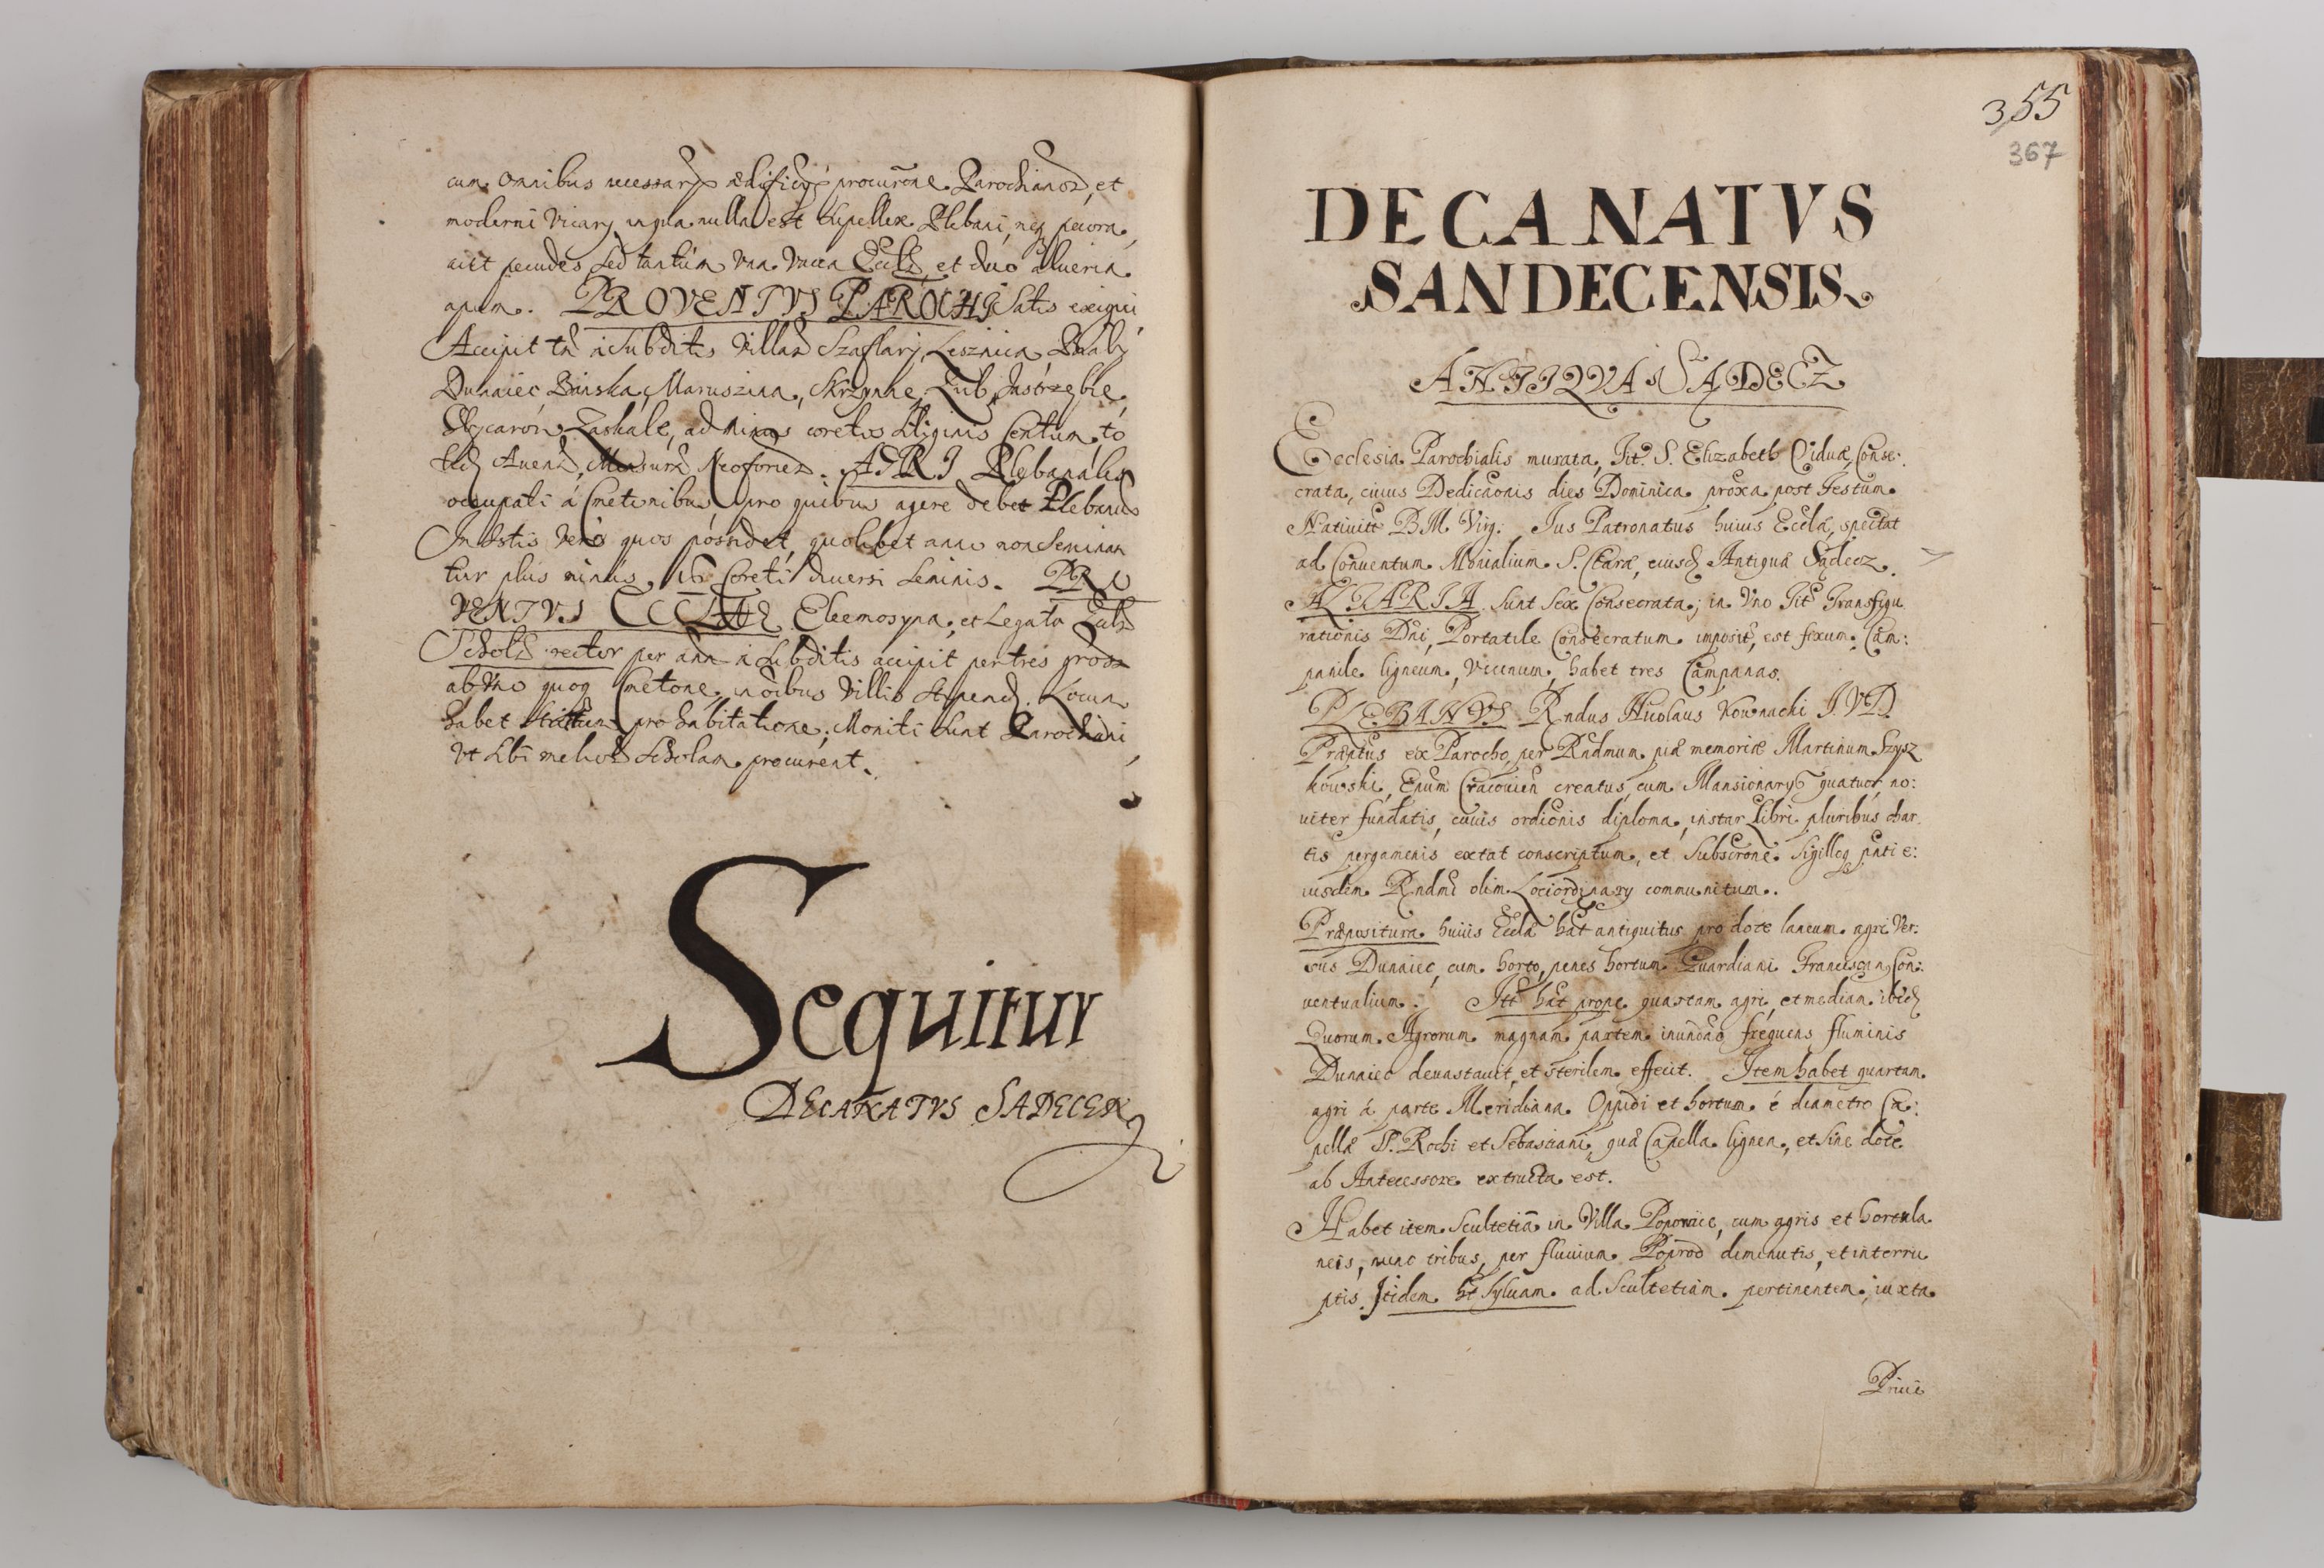 cum omnibus necessarijs ædificijs procurõne Parochianoꝝ, et
moderni Vicarij in qua nulla est supellex Plebani, neq pecora,
aut pecudes, sed tantùm vna vacca Eccl̃æ, et duo aluearia
apum. PROVENTVS PAROCHI Satis exigui,
Accipit tñ à Subditis Villarũ Szaflary, Lesznica, Bialy
Dunaiec, Bańska, Maruszina, Skrzypne, Zub, Jastrzębie,
Zaskale, ad minus coretos Siliginis Centum, to
Auenæ, Mensuræ Neoforien. AGRI Plebanales
occupati á Cmetonibus, pro quibus agere debet Plebanus
In istis verò quos possidet, quolibet anno non Seminan
tur plus minus, Coreti diuersi seminis. PRO
VENTVS ECCLIÆ Eleemosyna, et Legata
Scholæ rector per ann à Subditis accipit per tres gross
ab vno quoq Cmetone, in oĩbus Villis stipend. Locum
habet pro habitatione; Moniti sunt Parochiani,
vt sibi melioꝝ Scholam procurent.
Sequitur
DECANATVS SADECEN
355
367
DECANATVS
SANDECENSIS
ANTIQVA SADECZ
Ecclesia Parochialis murata, Tit. S. Elizabeth Viduæ, Conse:
crata, cuius Dedicaõnis dies Dominica proxa post Festum
Natiuit B M Virg: Jus Patronatus huius Eccłæ, spectat
ad Conuentum Monialium S. Claræ, eiusd Antiquæ Sądecz.
ALTARIA Sunt Sex Consecrata; in Vno Tit Transfigu
rationis Dñi, Portatile Consecratum imposit, est fixum. Cam:
panile ligneum, vicinum, habet tres Campanas.
PLEBANVS Rndus Nicolaus Kownacki I.V.D.
Præptus ex Parocho, per Rndmum piæ memoriæ Martinum Szysz
kowski, Epum Cracouien creatus, cum Mansionarijs quatuor no:
uiter fundatis, cuius ordiõnis diploma, instar libri pluribus char
tis pergamenis extat conscriptum, et Subscrone Sigilloq pnti e:
iusdem Rndmi olim Lociordinary communitum.
Præpositura huius Eccłæ hat antiquitus pro dote laneum agri Ver:
sus Dunaiec, cum horto, penes hortum Guardiani Franciscan Con:
uentualium. It hat prope quartam agri, et mediam ibid
Quorum Agrorum magnam partem inundao frequens fluminis
Dunaiec deuastauit, et sterilem effecit. Item habet quartam
agri á parte Meridiana Oppidi et hortum é diametro Ca:
pellæ SS. Rochi et Sebastiani, quæ Capella lignea, et sine dote
ab Antecessore extructa est.
Habet item Scultetiã in Villa Popowice, cum agris et hortula
neis, nunc tribus, per fluuium Poprod diminutis, et interru
ptis Itidem ht Syluam ad Scultetiam pertinentem, iuxta
Priui